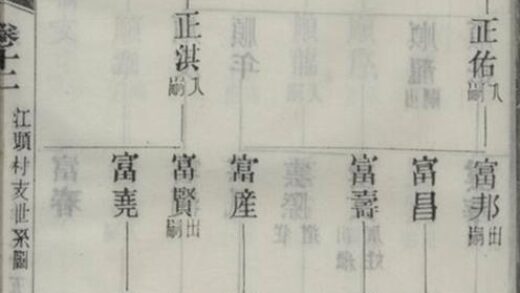 正佑 入嗣
正淇 入嗣
富邦 出嗣
富昌
富壽
富産
富賢 出嗣
富堯
卷十二
江頭村支世系圖